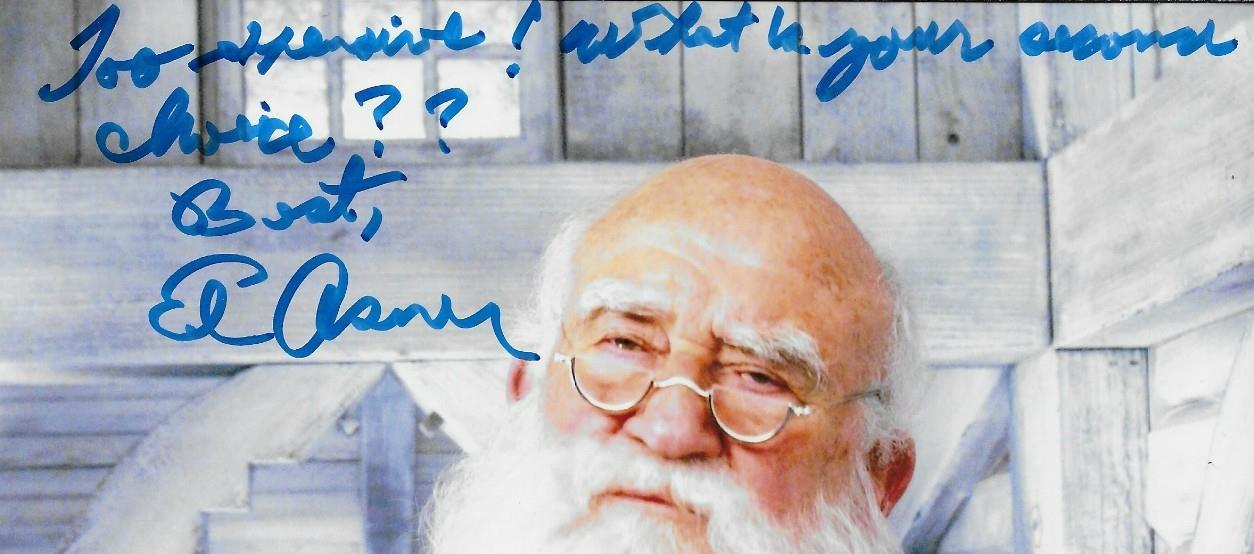 Too expensive! What is your second
choice??
Best,
Ed Asner